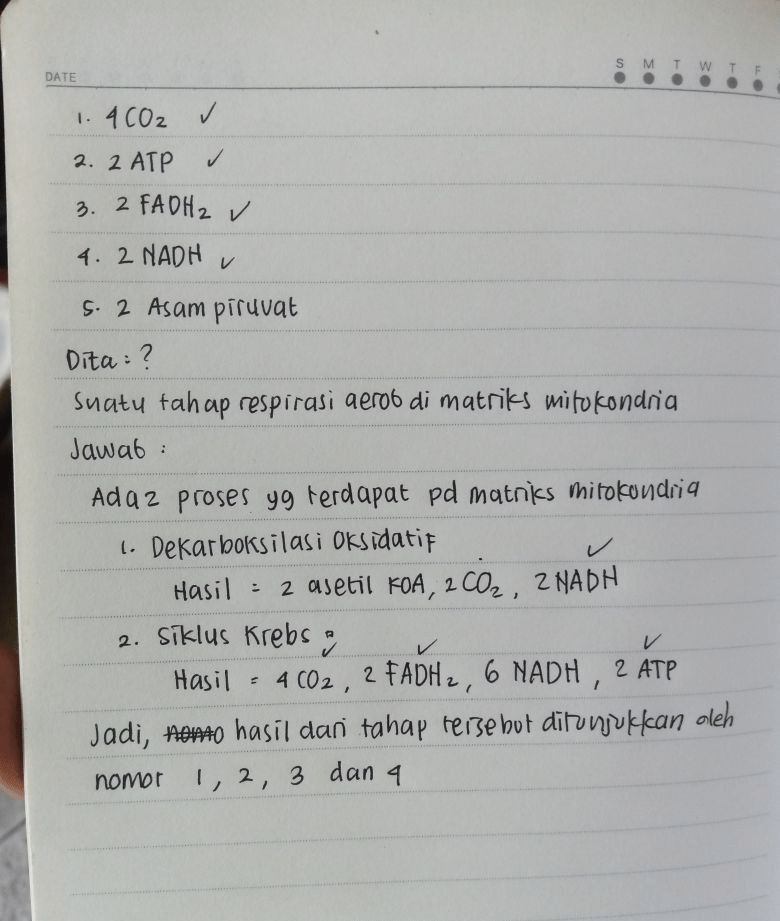 DATE
S M T W T F
1. 4CO₂ ✓
2. 2 ATP ✓
3. 2 FADH₂ ✓
4. 2 NADH ✓
5. 2 Asam piruvat
Dita : ?
Suatu tahap respirasi aerob di matriks mitokondria
Jawab :
Ada 2 proses yg terdapat pd matriks mitokondria
1. Dekarboksilasi Oksidatif
Hasil = 2 asetil KOA, 2CO₂, 2NADH ✓
2. Siklus Krebs :
Hasil = 4 CO₂ ✓, 2 FADH₂ ✓, 6 NADH, 2 ATP ✓
Jadi, hasil dari tahap tersebut ditunjukkan oleh
nomor 1, 2, 3 dan 4